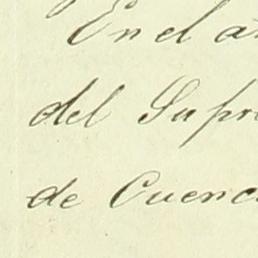 En el a
del Supr
de Cuenc